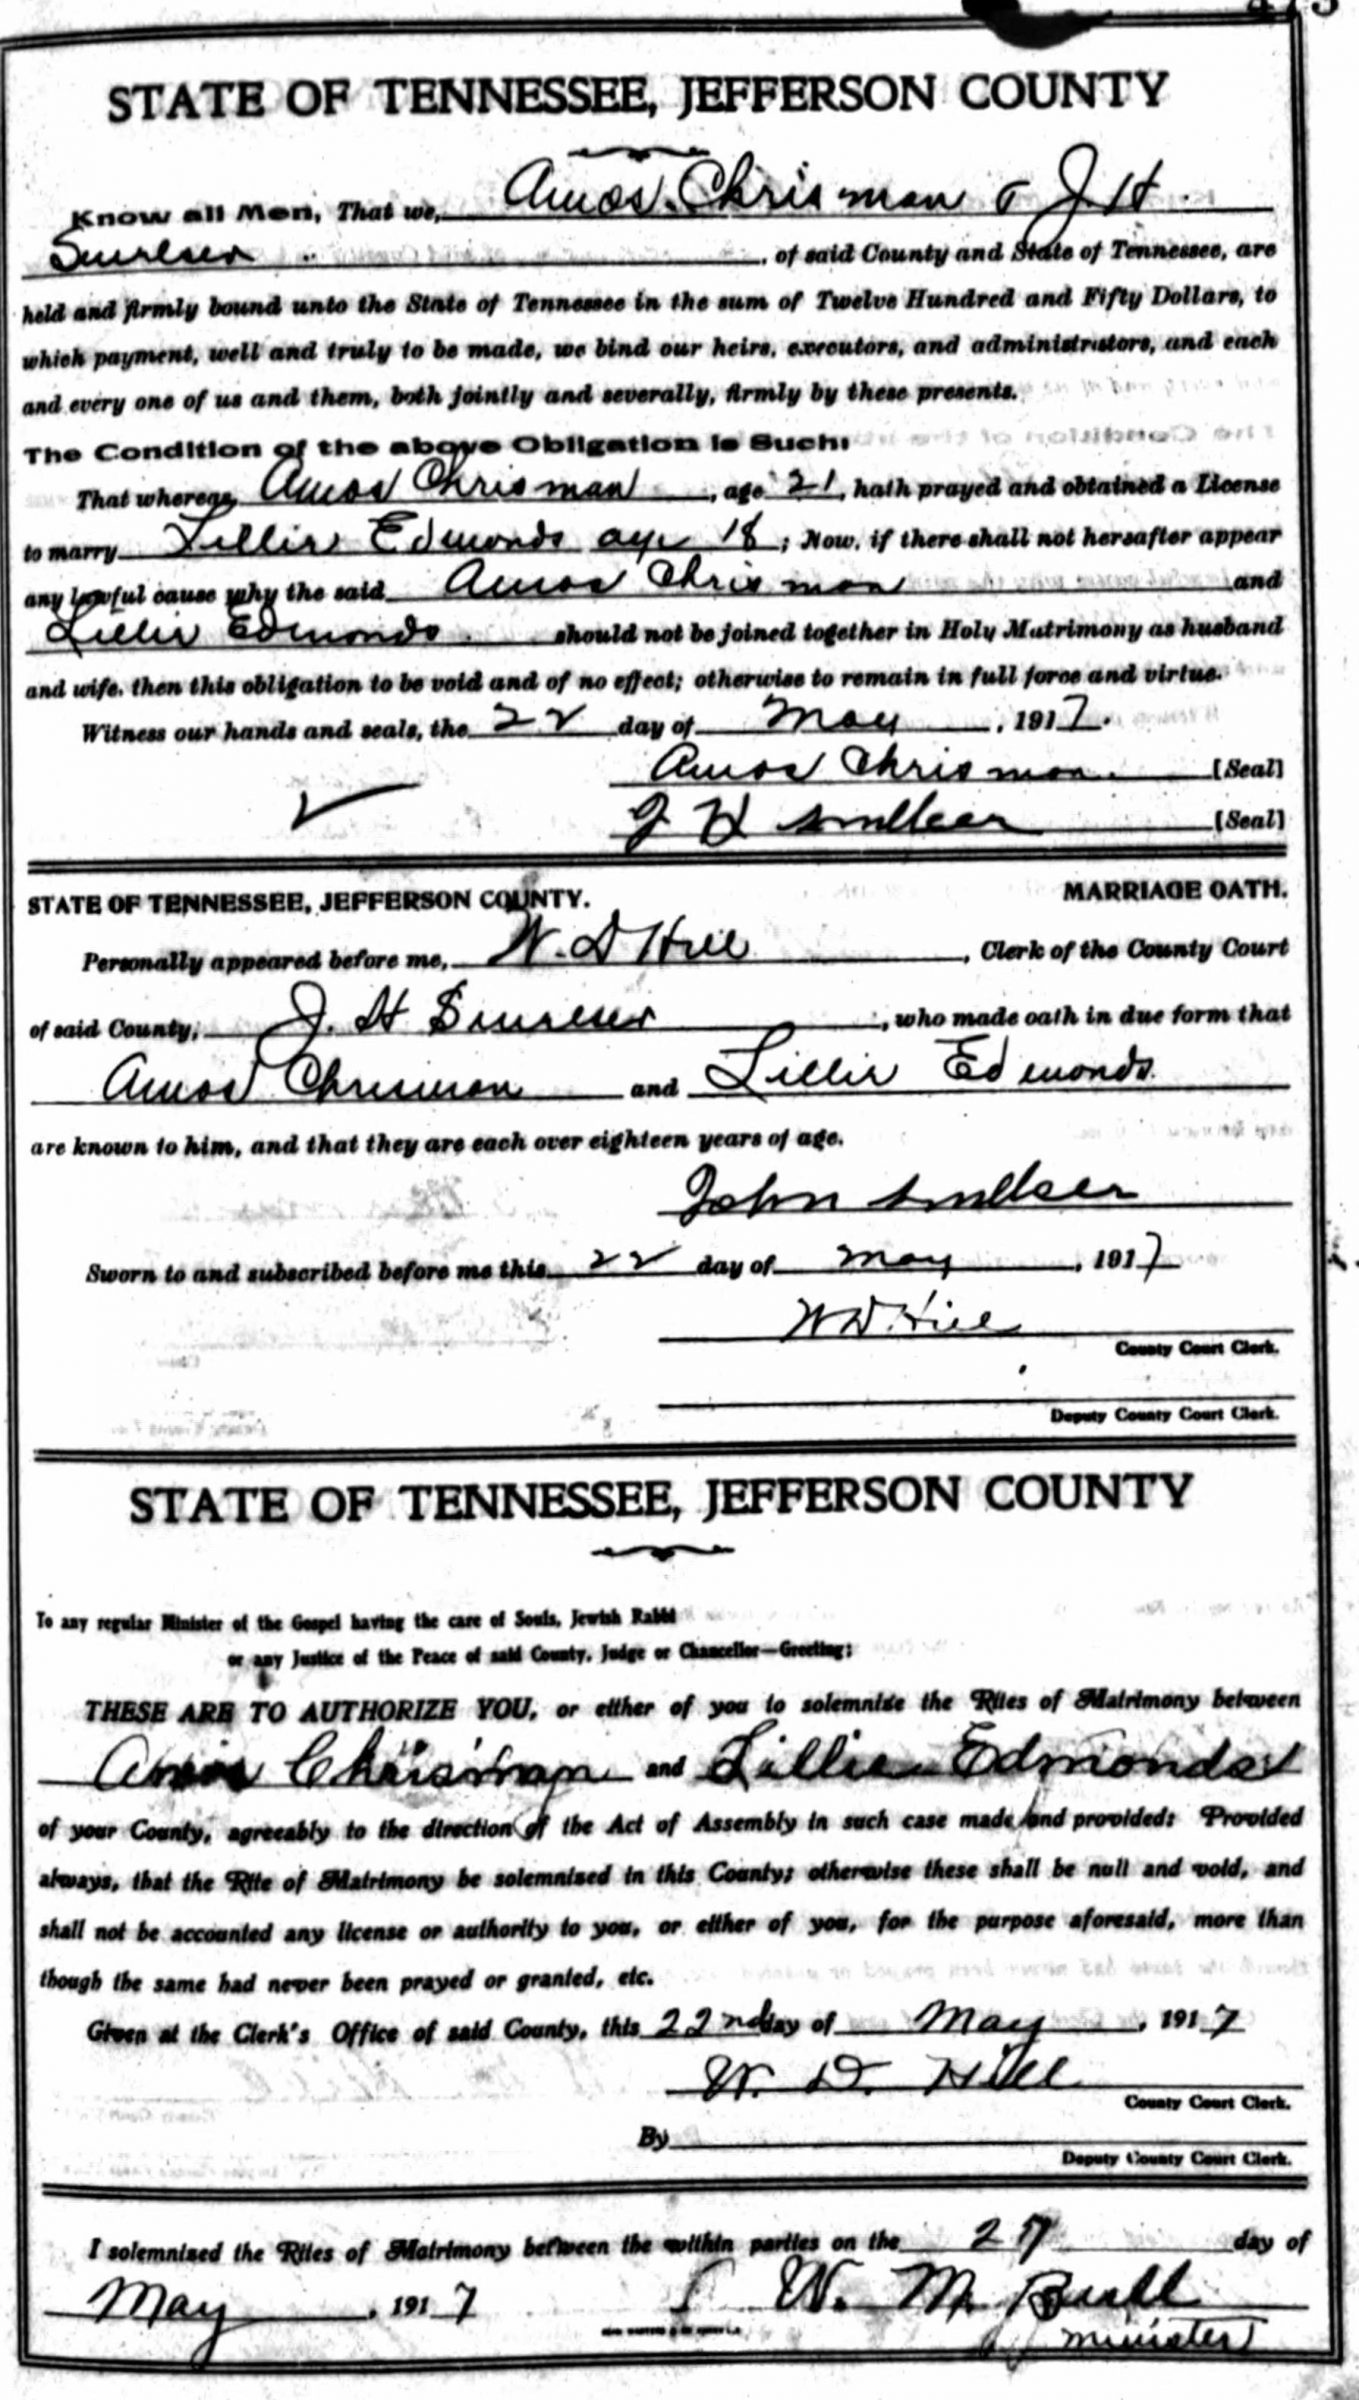 STATE OF TENNESSEE, JEFFERSON COUNTY
Know all Men, That we, Amos Chrisman & J H
Smelser, of said County and State of Tennessee, are
held and firmly bound unto the State of Tennessee in the sum of Twelve Hundred and Fifty Dollars, to
which payment, well and truly to be made, we bind our heirs, executors, and administrators, and each
and every one of us and them, both jointly and severally, firmly by these presents.
The Condition of the above Obligation is Such:
That whereas, Amos Chrisman, age 21, hath prayed and obtained a License
to marry Lillie Edmonds age 18; Now, if there shall not hereafter appear
any lawful cause why the said Amos Chrisman and
Lillie Edmonds should not be joined together in Holy Matrimony as husband
and wife, then this obligation to be void and of no effect; otherwise to remain in full force and virtue.
Witness our hands and seals, the 22 day of May, 1917.
Amos Chrisman. [Seal]
J H [Seal]
STATE OF TENNESSEE, JEFFERSON COUNTY. MARRIAGE OATH.
Personally appeared before me, W. D Hill, Clerk of the County Court
of said County, J. H Smelser, who made oath in due form that
Amos Chrisman and Lillie Edmonds
are known to him, and that they are each over eighteen years of age.
John
Sworn to and subscribed before me this 22 day of May, 1917
W D. Hill
County Court Clerk.
Deputy County Court Clerk.
STATE OF TENNESSEE, JEFFERSON COUNTY
To any regular Minister of the Gospel having the care of Souls, Jewish Rabbi
or any Justice of the Peace of said County, Judge or Chancellor—Greeting:
THESE ARE TO AUTHORIZE YOU, or either of you to solemnize the Rites of Matrimony between
Amos Chrisman and Lillie Edmonds
of your County, agreeably to the direction of the Act of Assembly in such case made and provided: Provided
always, that the Rite of Matrimony be solemnized in this County; otherwise these shall be null and void, and
shall not be accounted any license or authority to you, or either of you, for the purpose aforesaid, more than
though the same had never been prayed or granted, etc.
Given at the Clerk's Office of said County, this 22nd day of May, 1917
W. D. Hill
County Court Clerk.
By
Deputy County Court Clerk.
I solemnized the Rites of Matrimony between the within parties on the 27 day of
May, 1917 W. M.
minister